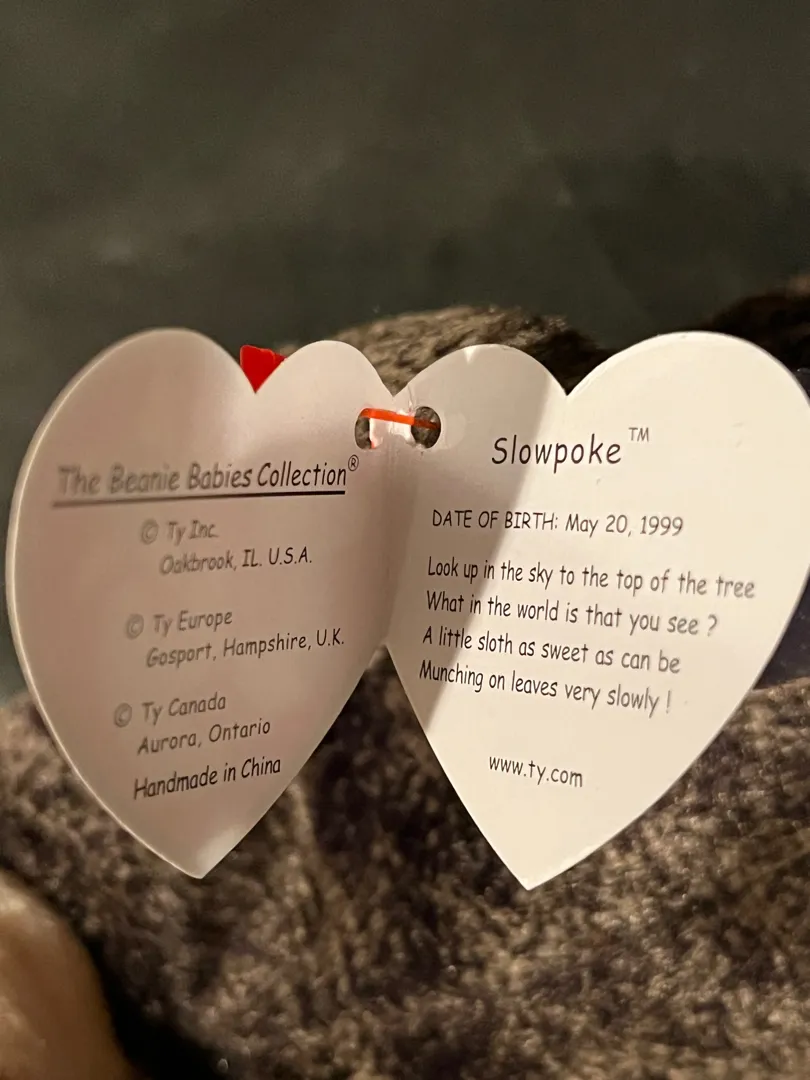 The Beanie Babies Collection®
© Ty Inc.
Oakbrook, IL. U.S.A.
© Ty Europe
Gosport, Hampshire, U.K.
© Ty Canada
Aurora, Ontario
Handmade in China
Slowpoke™
DATE OF BIRTH: May 20, 1999
Look up in the sky to the top of the tree
What in the world is that you see ?
A little sloth as sweet as can be
Munching on leaves very slowly !
www.ty.com